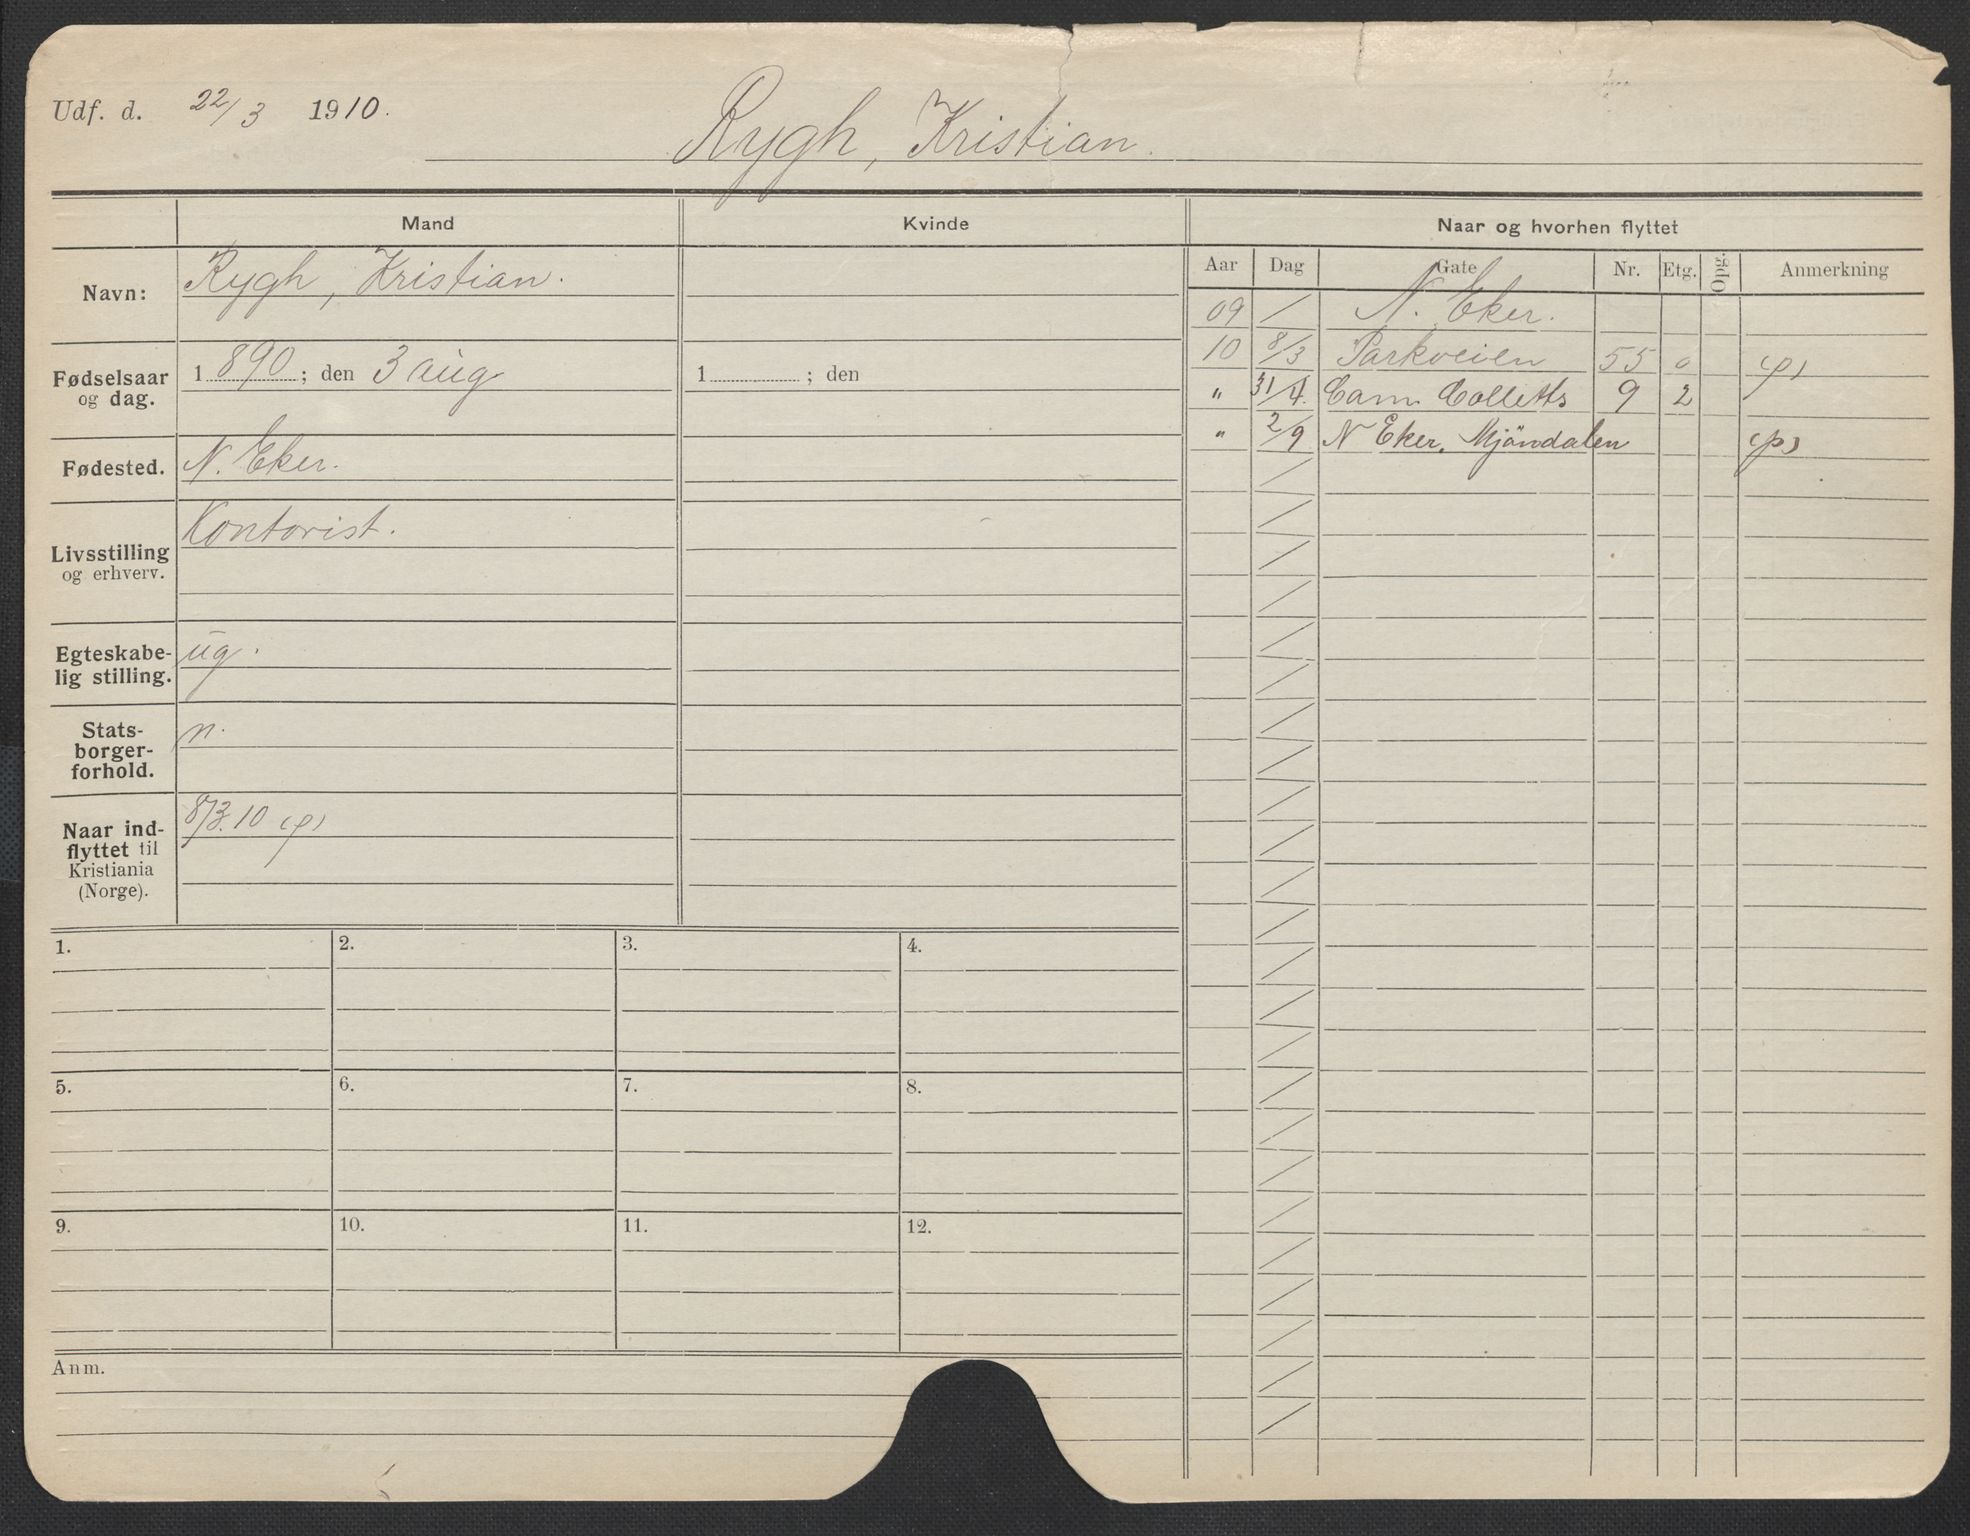 Udf. d. 22/3 1910.
Rygh, Kristian.
Mand Kvinde Naar og hvorhen flyttet
Aar Dag Gate Nr. Etg. Opg. Anmerkning
Navn: Rygh, Kristian.
Fødselsaar og dag. 1 890 ; den 3 aug 1 ; den
Fødested. N. Eker.
Livsstilling og erhverv. Kontorist.
Egteskabe-
lig stilling. ug.
Stats-
borger-
forhold. n.
Naar ind-
flyttet til
Kristiania
(Norge). 8/3.10 (p)
09 / N. Eker.
10 8/3 Parkveien 55 0 (p)
" 31/4. Cam. Colletts 9 2
" 2/9 N Eker. Mjöndalen (p)
1. 2. 3. 4.
5. 6. 7. 8.
9. 10. 11. 12.
Anm.